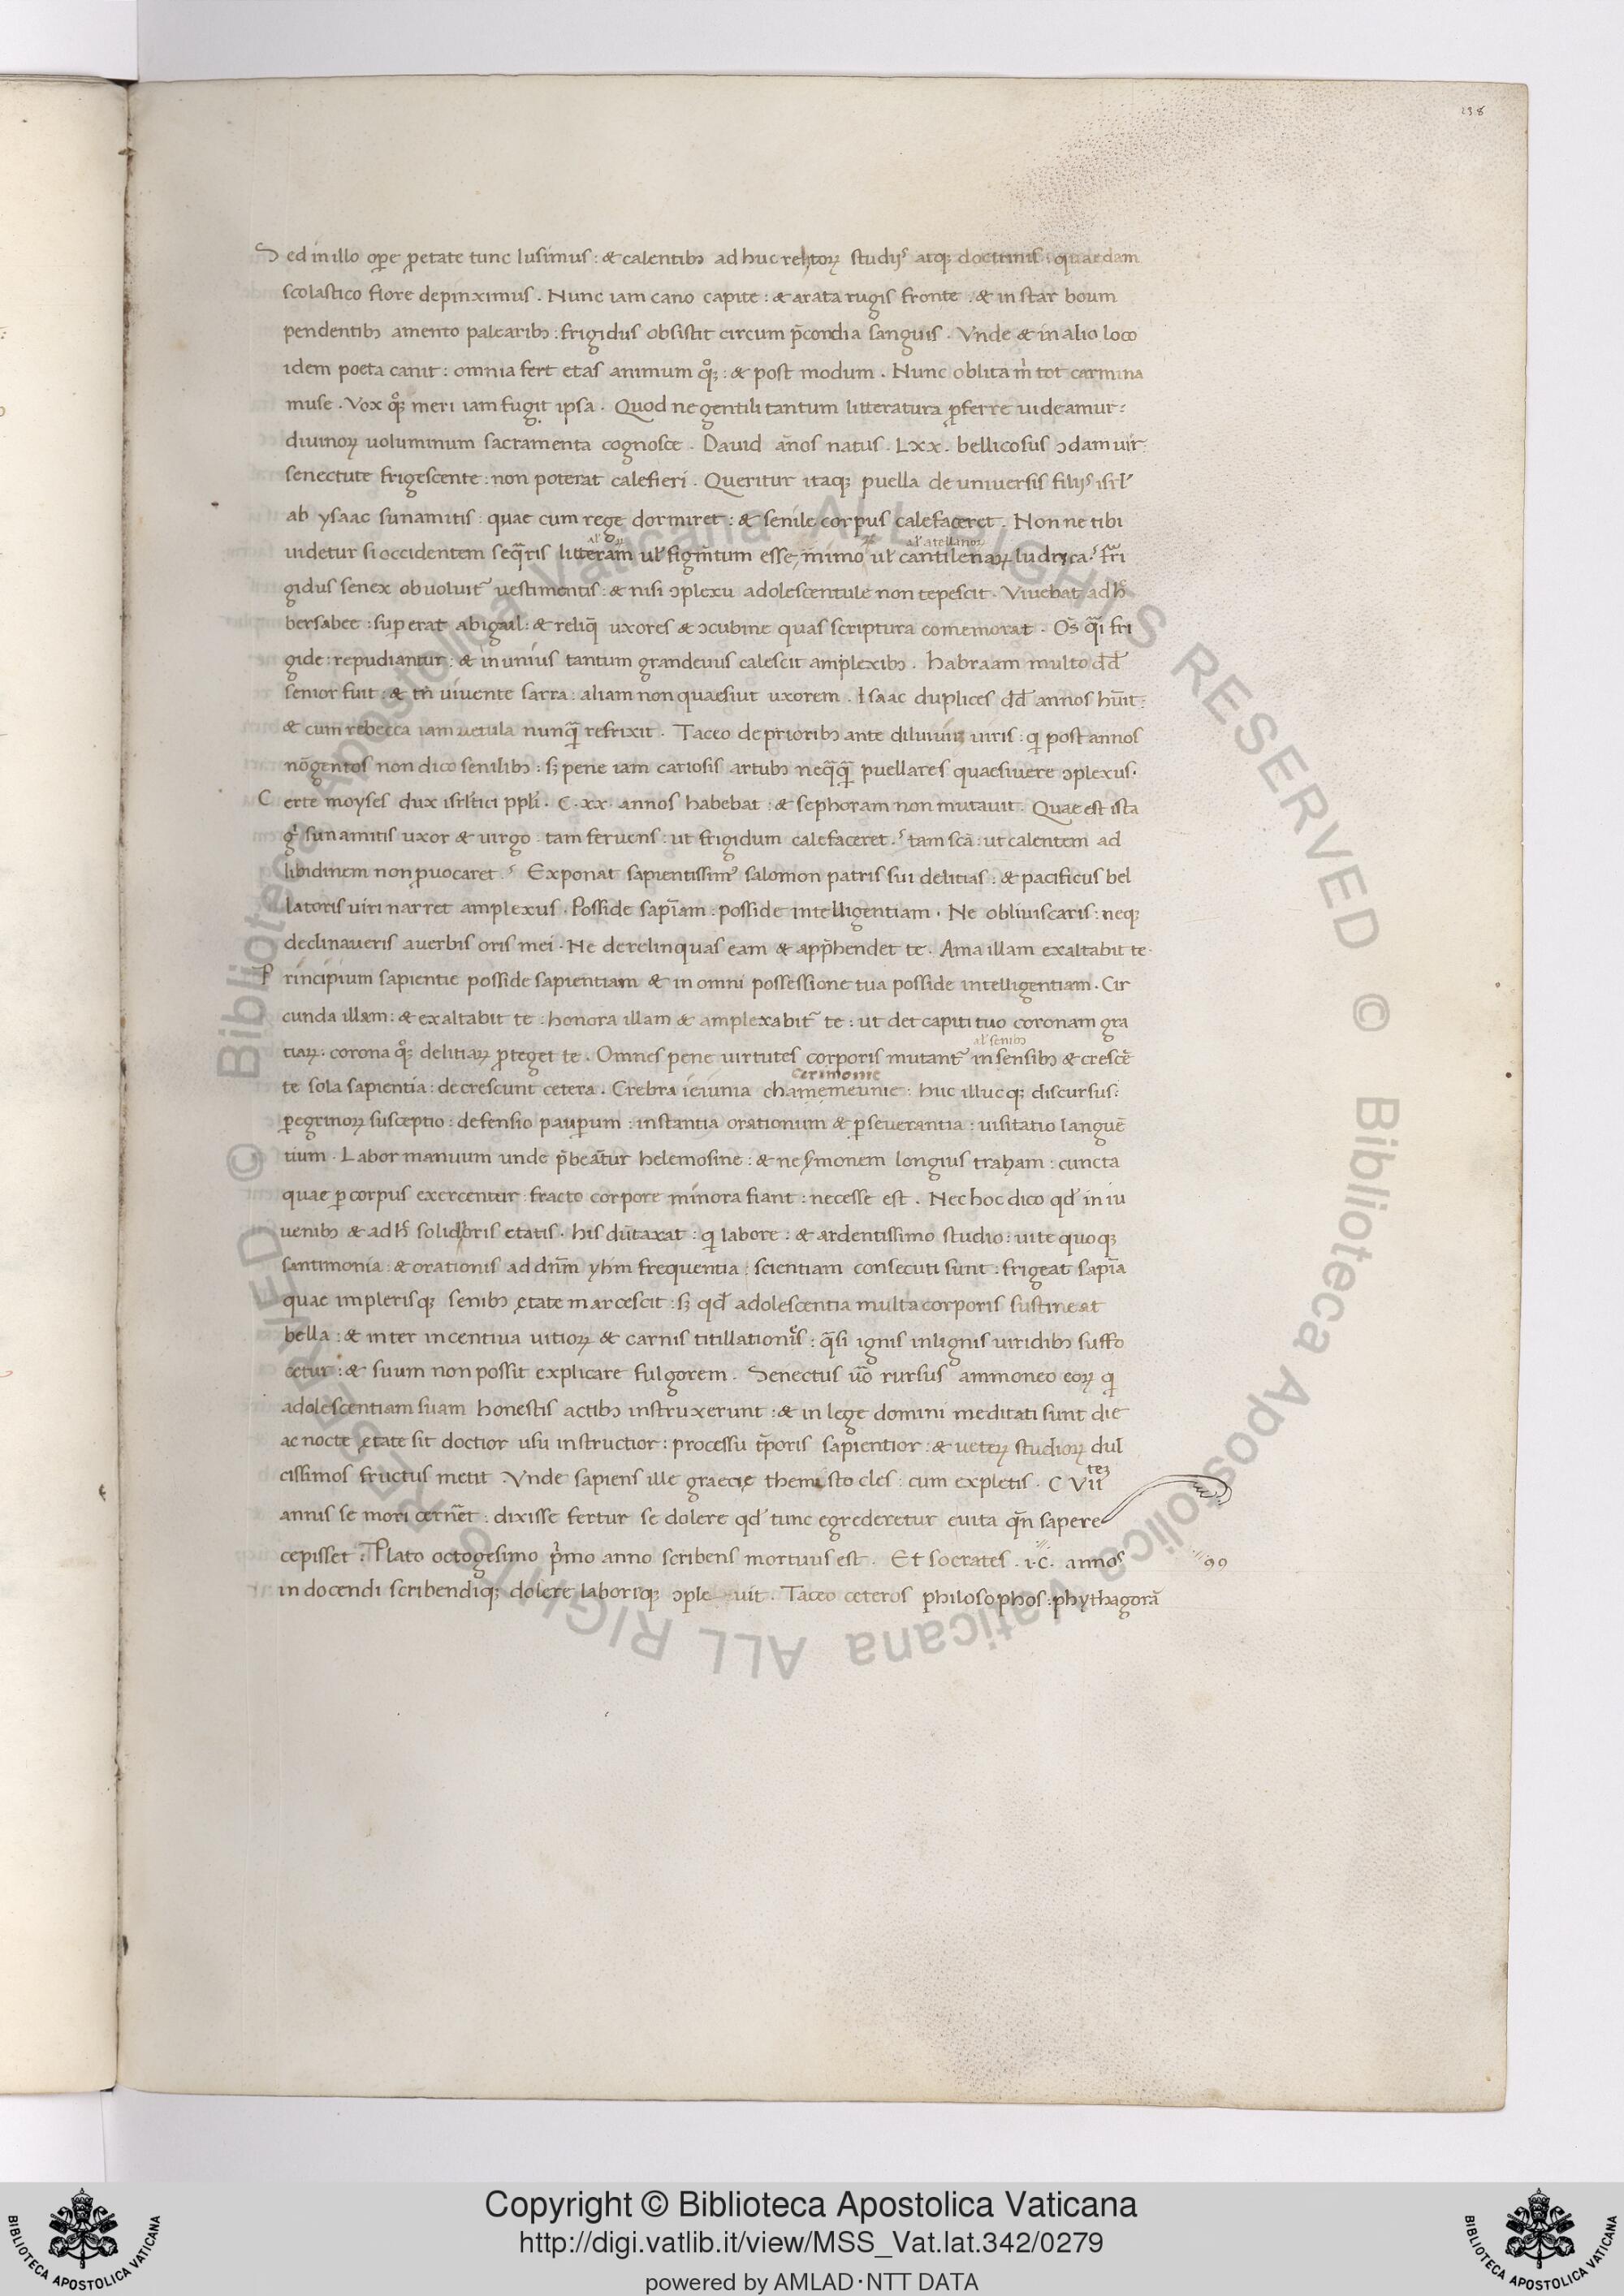 138
Sed in illo oꝑe ꝓ etate tunc lusimus : & calentibꝫ ad huc rehtorꝝ studijs atqꝫ doctrinis : quaedam
scolastico fiore depinximus . Nunc iam cano capite : & arata rugis fronte . & in star boum
pendentibꝫ amento palearibꝫ : frigidus obsistit circum p̄cordia sanguis . Vnde & in alio loco
idem poeta canit : omnia fert etas animum qͦꝫ : & post modum . Nunc oblita m̍ tot carmina
muse . Vox qͦꝫ meri iam fugit ipsa . Quod ne gentili tantum litteratura ꝓferre uideamur :
diuinorꝝ uoluminum sacramenta cognosce . Dauid an̄os natus . Lxx . bellicosus ꝯdam uir
senectute frigescente : non poterat calefieri . Queritur itaqꝫ puella de uniuersis filijs isrl̄
ab ysaac sunamitis : quae cum rege dormiret : & senile corpus calefaceret . Non ne tibi
al'
al' atellanorꝝ
uidetur si occidentem seq̄ris litteram ul' figm̄tum esse, mimo ul' cantilenarꝝ ludrica . fri
gidus senex obuoluit᷑ uestimentis : & nisi ꝯplexu adolescentule non tepescit . Viuebat adh̾
bersabee : suꝑ erat abigail : & reliq̄ uxores & ꝯcubine quas scriptura comemorat . Os̄ qͣi fri
gide : repudiantur : & in unius tantum grandeuus calescit amplexibꝫ . habraam multo dd̄
senior fuit : & tn̄ uiuente sarra : aliam non quaesiut uxorem . Isaac duplices dd̄ annos hūit :
& cum rebecca iam uetula nunqͣ̄ refrixit . Taceo de prioribꝫ ante diluuiū uiris : qi post annos
nōgentos non dico senilibꝫ : sꝫ pene iam cariosis artubꝫ neqͣqͣ̄ puellares quaesiuere ꝯplexus .
Certe moyses dux isrl̄itici ppl̄i . C . xx . annos habebat : & sephoram non mutauit . Quae est ista
gͥ sunamitis uxor & uirgo . tam feruens : ut frigidum calefaceret . tam scā : ut calentem ad
libidinem non ꝓuocaret . Exponat sapientissim᷒ salomon patris sui delitias : & pacificus bel
latoris uiri narret amplexus . Posside sapīam : posside intelligentiam . Ne obliuiscaris : neqꝫ
declinaueris auerbis oris mei . Ne derelinquas eam & app̄hendet te . Ama illam exaltabit te .
Principium sapientie posside sapientiam & in omni possessione tua posside intelligentiam . Cir
cunda illam : & exaltabit te : honora illam & amplexabit᷑ te : ut det capiti tuo coronam gra
al' senibꝫ
tiarꝝ : corona qͦꝫ delitiarꝝ ꝓteget te . Omnes pene uirtutes corporis mutant᷑ in sensibꝫ & crescē
cerimonie
te sola sapientia : decrescunt cetera . Crebra ieiunia chamemeunie : huc illucqꝫ discursus :
ꝑegrinorꝝ susceptio : defensio pauꝑum : instantia orationum & ꝑseuerantia : uisitatio languē
tium . Labor manuum unde p̄beātur helemosine : & ne s̾monem longius traham : cuncta
quae ꝑ corpus exercentur fracto corpore minora fiant : necesse est . Nec hoc dico qd̾ in iu
uenibꝫ & adh̾ solidioris etatis . his dūtaxat : qi labore : & ardentissimo studio : uite quoqꝫ
santimonia : & orationis ad dn̄m yhm frequentia : scientiam consecuti sunt : frigeat sapīa
quae implerisqꝫ senibꝫ etate marcescit : sꝫ qd̾ adolescentia multa corporis sustineat
bella : & inter incentiua uitiorꝝ & carnis titillationēs : qͣsi ignis inlignis uiridibꝫ suffo
cetur : & suum non possit explicare fulgorem . Senectus ūo rursus ammoneo eorꝝ qi
adolescentiam suam honestis actibꝫ instruxerunt : & in lege domini meditati sunt die
ac nocte etate sit doctior usu instructior : processu tp̄oris sapientior : & ueterꝝ studiorꝝ dul
cissimos fructus metit Vnde sapiens ille graecie themisto cles : cum expletis . C Vii
annis se mori cern̄et : dixisse fertur se dolere qd̾ tunc egrederetur euita qn̄ sapere
cepisset : Plato octogesimo pͥmo anno scribens mortuus est . Et socrates . i.c̄ . annos
99
in docendi scribendiqꝫ dolere laboriqꝫ ꝯple uit . Taceo ceteros philosophos : phythagorā
© Biblioteca Apostolica Vaticana ALL RIGHTS RESERVED © Biblioteca Apostolica Vaticana ALL RIGHTS RESERVED
Copyright © Biblioteca Apostolica Vaticana
http://digi.vatlib.it/view/MSS_Vat.lat.342/0279
powered by AMLAD·NTT DATA
BIBLIOTECA APOSTOLICA VATICANA
BIBLIOTECA APOSTOLICA VATICANA